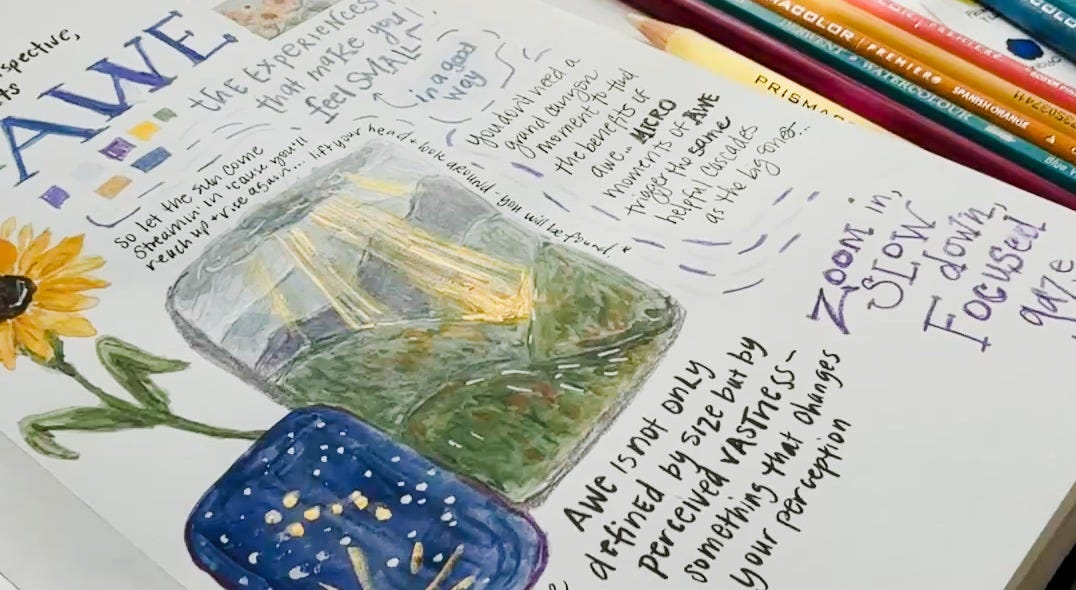 spective,
AWE
the EXPERIENCES
that make you
feel SMALL!
in a good
way
You don't need a
grand canyon
moment to find
the benefits of
awe... MICRO
moments of AWE
trigger the same
helpful cascades
as the big ones...
So let the sun come
streamin in 'cause you'll
reach up + rise again... lift your head + look around - you will be found. *
Zoom in,
SLOW
down,
Focused
gaze
AWE is not only
defined by size but by
perceived VASTNESS -
something that changes
your perception
PRISMA
COLOR | PREMIER
SPANISH ORANGE
DERWENT
WATERCOLOUR
PREMIER